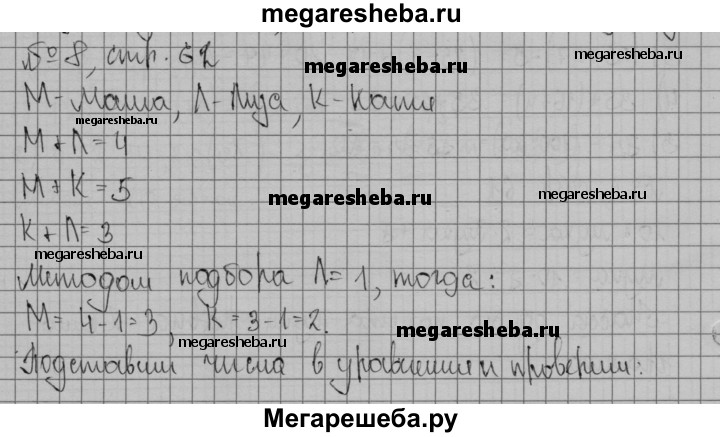 megaresheba.ru
№ 8, стр. 62
megaresheba.ru
megaresheba.ru
М - Маша, Л - Лиза, К - Катя
megaresheba.ru
М + Л = 4
М + К = 5
megaresheba.ru
megaresheba.ru
К + Л = 3
megaresheba.ru
Методом подбора Л = 1, тогда:
М = 4 - 1 = 3, К = 3 - 1 = 2.
megaresheba.ru
megaresheba.ru
Подставим числа в уравнения и проверим:
Мегарешеба.ру